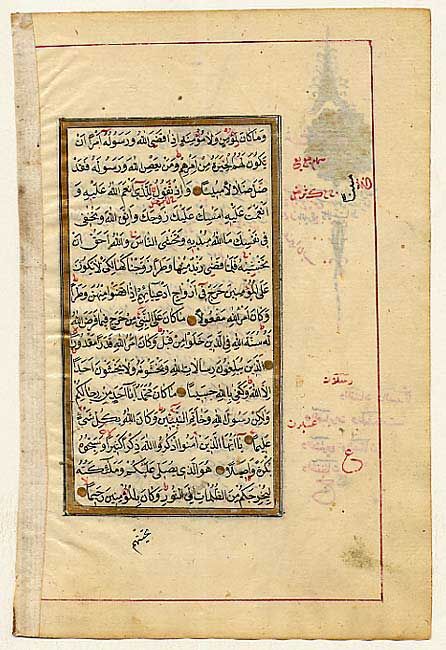 وما كان لمؤمن ولا مؤمنة اذا قضى الله ورسوله امرا ان
يكون لهم الخيرة من امرهم ومن يعص الله ورسوله فقد
ضل ضلالا مبينا واذ تقول للذي انعم الله عليه و
انعمت عليه امسك عليك زوجك واتق الله وتخفي
في نفسك ما الله مبديه وتخشى الناس والله احق ان
تخشيه فلما قضى زيد منها وطرا زوجناكها لكي لا يكون
على المؤمنين حرج في ازواج ادعيائهم اذا قضوا منهن وطرا
وكان امر الله مفعولا ما كان على النبي من حرج فيما فرض الله
له سنة الله في الذين خلوا من قبل وكان امر الله قدرا مقدورا
الذين يبلغون رسالات الله ويخشونه ولا يخشون احدا
الا الله وكفى بالله حسيبا ما كان محمد ابا احد من رجالكم
ولكن رسول الله وخاتم النبيين وكان الله بكل شيء
عليما يا ايها الذين آمنوا اذكروا الله ذكرا كثيرا وسبحوه
بكرة واصيلا هو الذي يصلي عليكم وملئكته
ليخرجكم من الظلمات الى النور وكان بالمؤمنين رحيما
تحيتهم
رسالات
ع